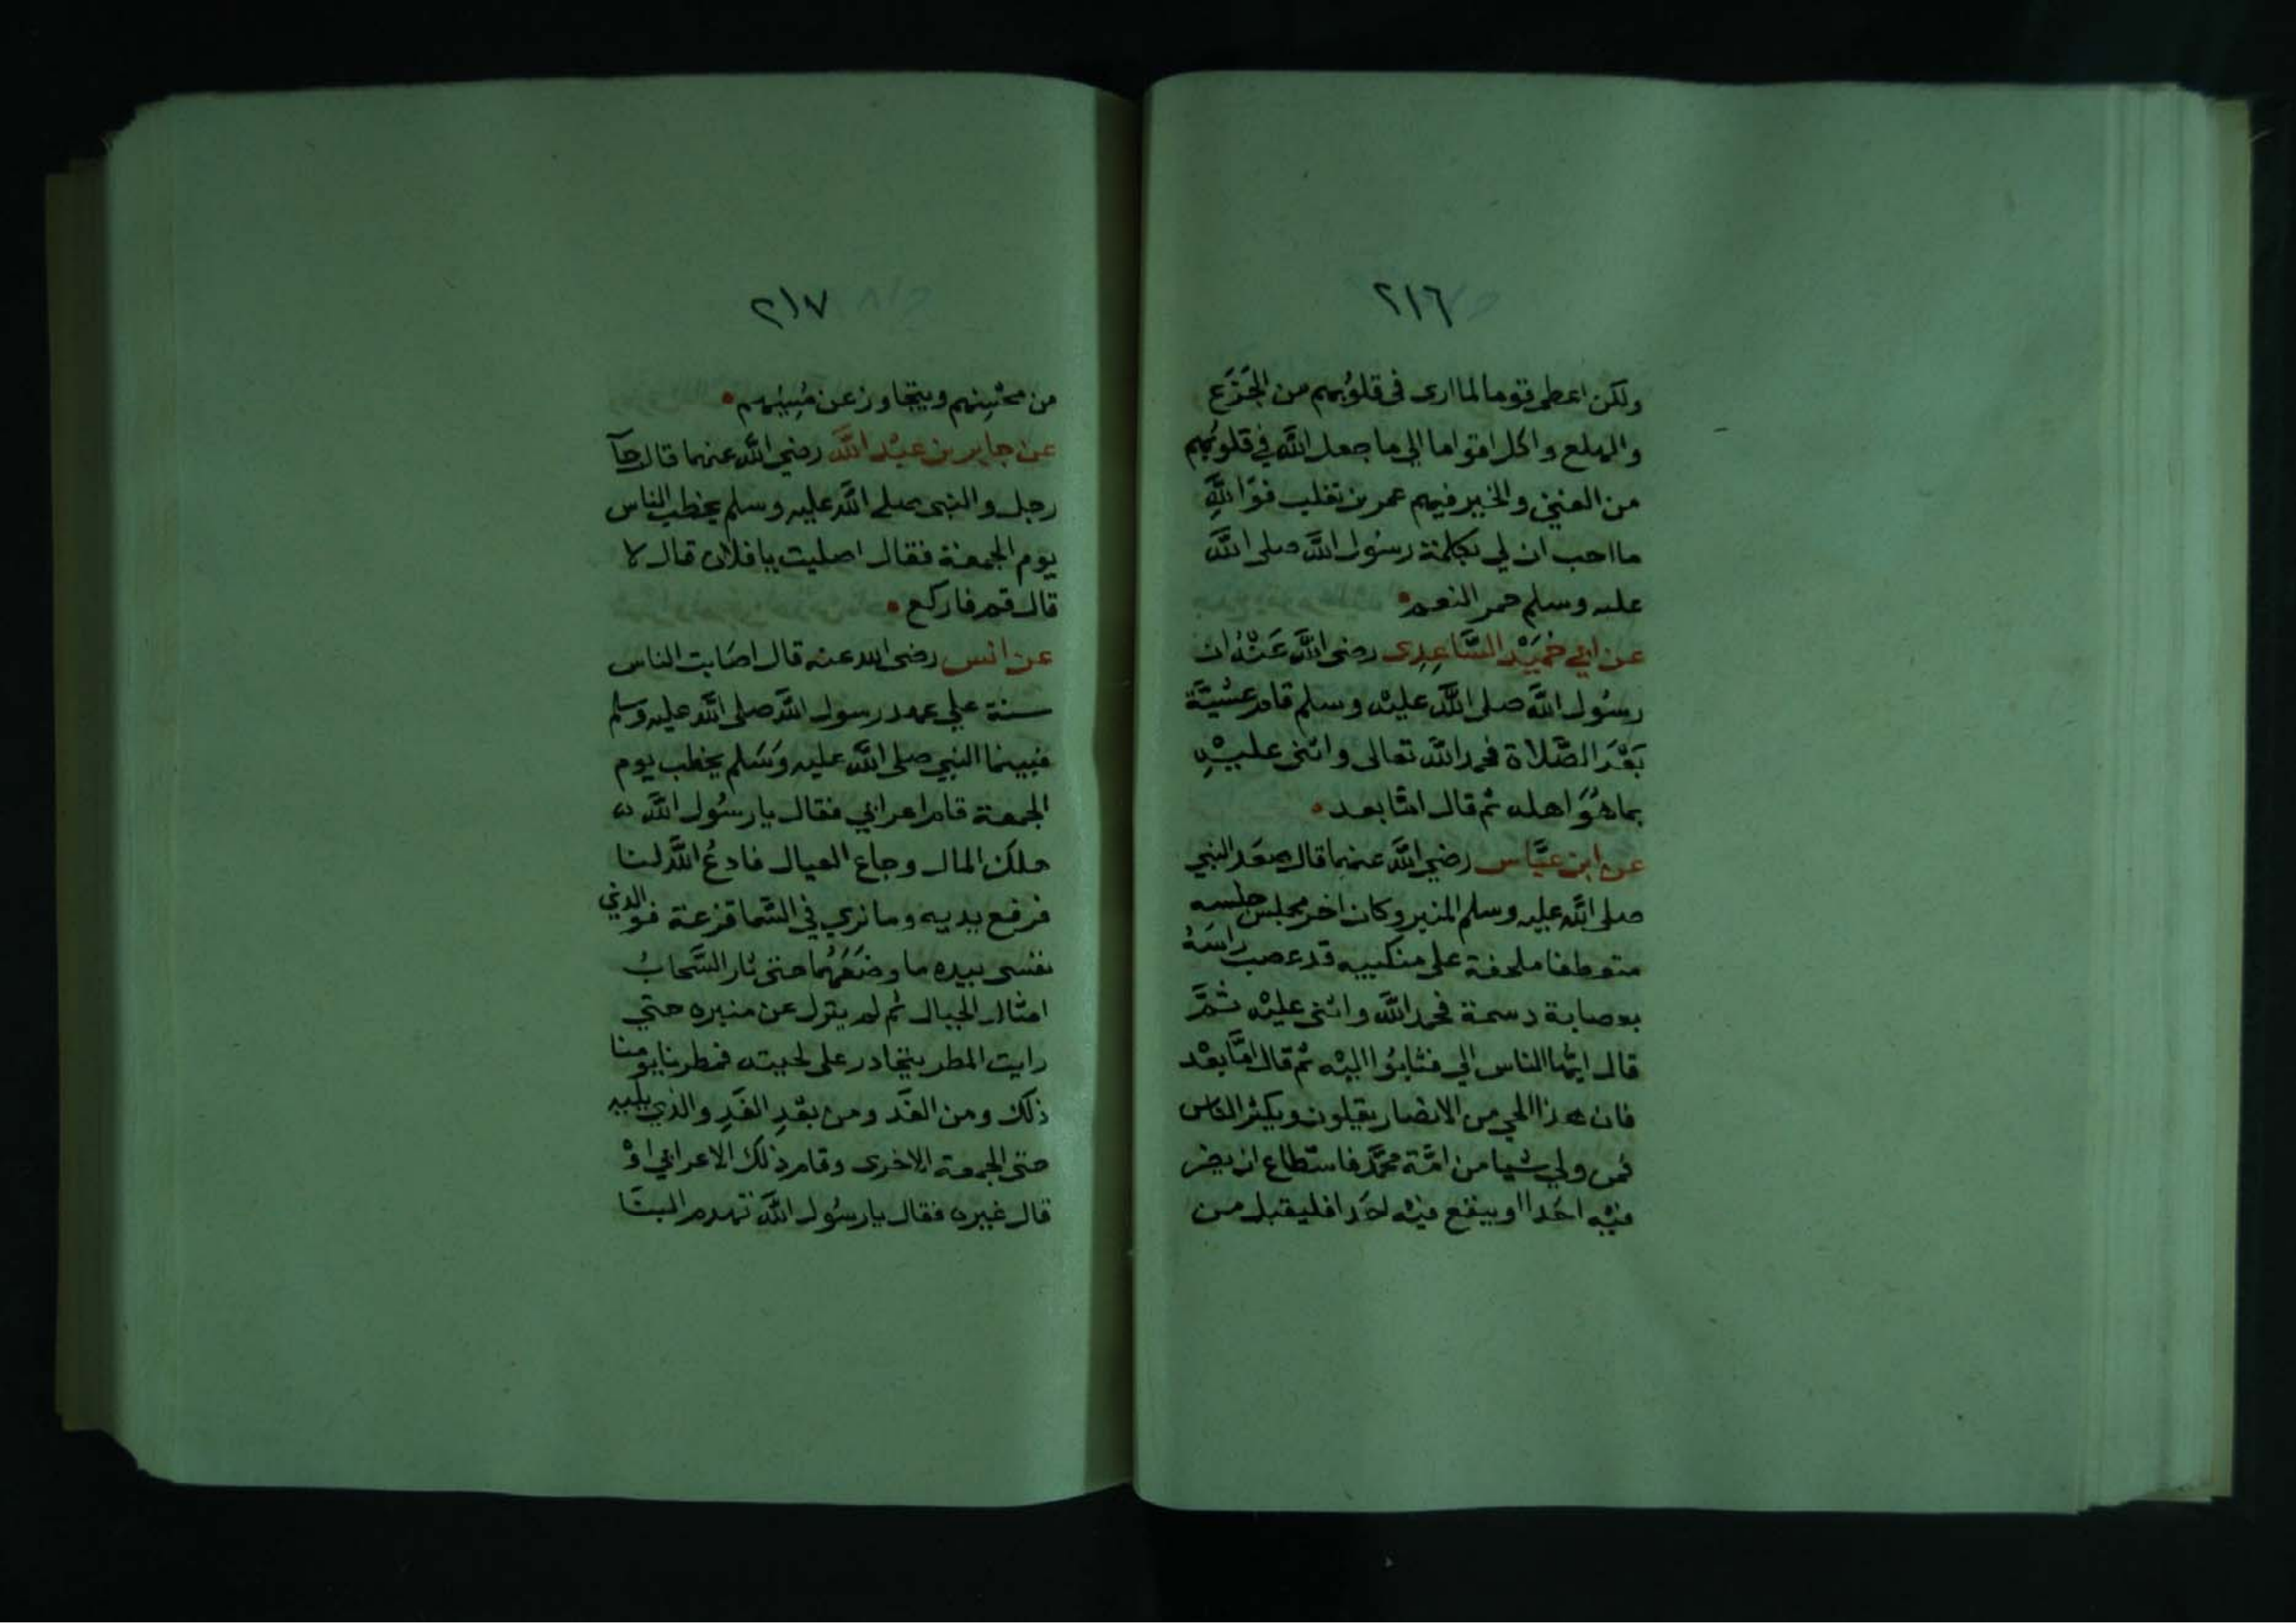 ٢١٦
ولكن اعطي قوما لما ارى في قلوبهم من الجَزَع
والهلع واكل اقواما الي ما جعل الله في قلوبهم
من الغني والخير فيهم عمر بن تغلب فوَاللَّهِ
ما احب ان لي بكلمة رسُول اللَّه صلى اللَّه
عليه وسلم حمر النعم
عن ابي حُمَيْد السَّاعِدِى رضى اللَّه عَنْهُ ان
رسُول اللَّه صلى اللَّه عليْه وسلم قام عشيَّة
بَعْدَ الصَّلاة فحمد اللَّه تعالى واثنى عليْهِ
بما هُوَ اهله ثم قال امَّا بعد
عن ابن عبَّاس رضي اللَّه عنهما قال صعَد النبي
صلى اللَّه عليه وسلم المنبر وكان اخر مجلس جلسه
متعطفا ملحفة على منكبيه قد عصب راسَهُ
بعصابة دسمة فحمد اللَّه واثنى عليْه ثمَّ
قال ايُّها الناس الي فثابُوا اليْه ثم قال امَّا بعْد
فان هذا الحي من الانصار يقلون ويكثر الناس
فمن ولي شيا من امَّة محمَّد فاستطاع ان يضر
فيْه احَدا او ينفع فيْه احَدا فليقبل من
٢١٧
من محْسِنِهم ويتجاوز عن مُسِيْئِهم
عن جابر بن عبْد اللَّه رضي اللَّه عنهما قال جآ
رجل والنبى صلى اللَّه عليه وسلم يخطب الناس
يوم الجمعة فقال اصليت يا فلان قال لا
قال قم فاركع
عن انس رضى الله عنه قال اصَابت الناس
سنة علي عهد رسول اللَّه صلى اللَّه عليه وسلم
فبينما النبي صلى اللَّه عليه وَسَلم يخطب يوم
الجمعة قام اعرابي فقال يا رسُول اللَّه
هلك المال وجاع العيال فادعُ اللَّه لنا
فرفع يديه وما نري في السَّما قزعة فو الذي
نفسى بيده ما وضَعَهُما حتى ثار السَّحابُ
امثال الجبال ثم لم ينزل عن منبره حتي
رايت المطر يتحادر على لحيته فمطرنا يومنا
ذلك ومن الغَد ومن بعْدِ الغَدِ والذي يليه
حتى الجمعة الاخرى وقام ذلك الاعرابي اوْ
قال غيره فقال يا رسُول اللَّه تهدم البنَا